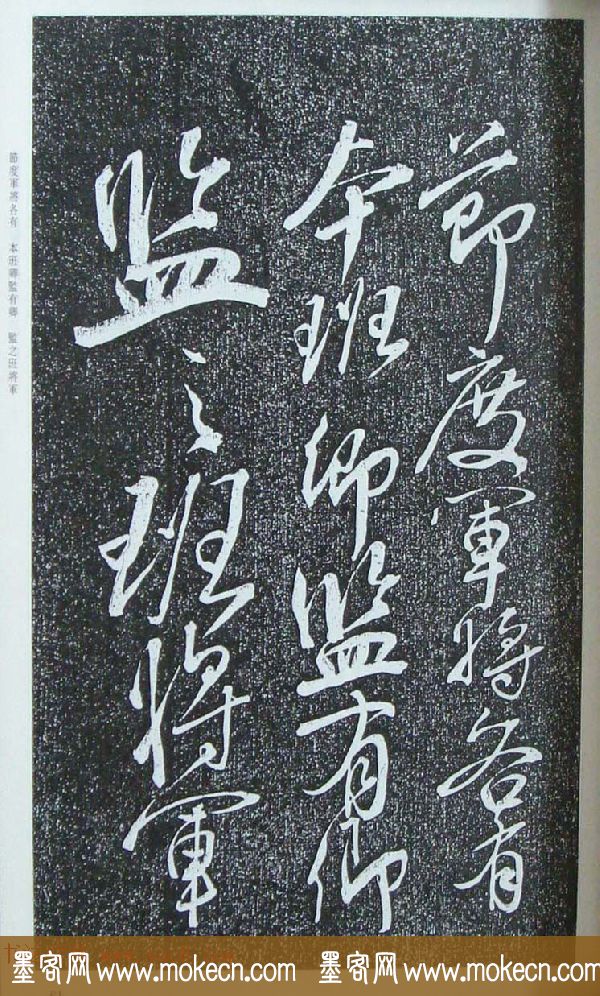 節度軍將各有
本班卿監有卿
監之班將軍
節度軍將各有 本班卿監有卿 監之班將軍
墨客网 www.mokecn.com 墨客网 www.mokecn.com